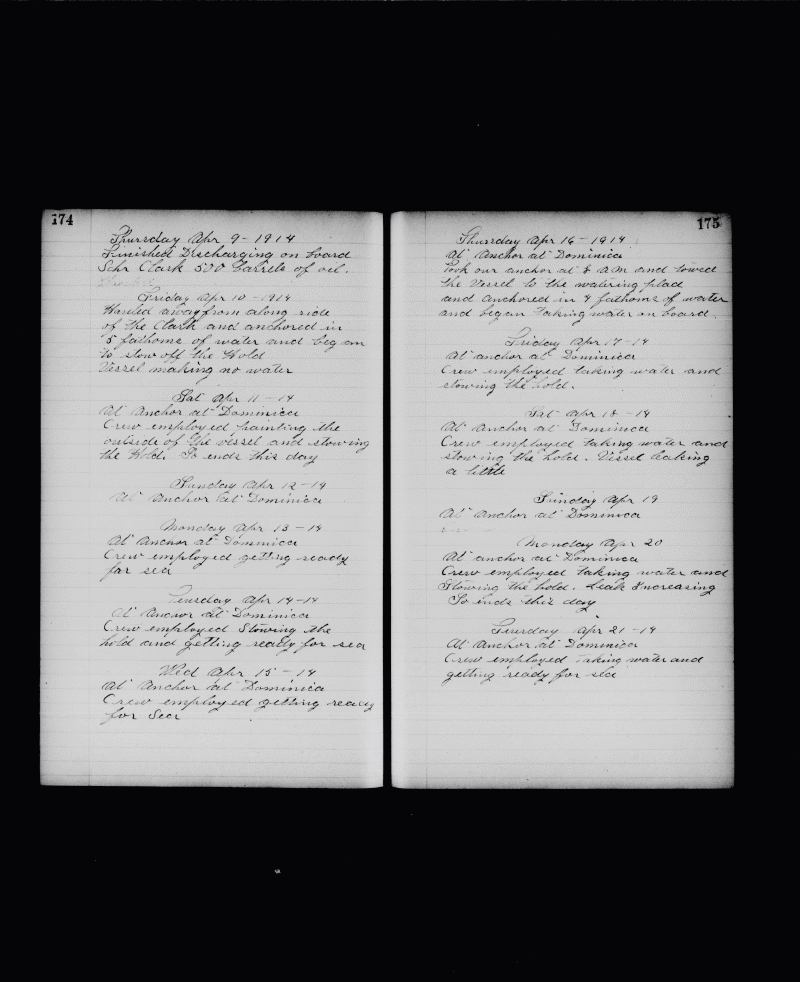 174
Thursday Apr 9 - 1914
Finished Discharging on board
Schr Clark 500 barrels of oil.
Friday Apr 10 - 1914
Hauled away from along side
of the Clark and anchored in
5 fathoms of water and began
to stow off the Hold
Vessel making no water
Sat Apr 11 - 14
At Anchor at Dominica
Crew employed painting the
outside of the vessel and stowing
the Hold. So ends this day
Sunday Apr 12 - 14
At Anchor at Dominica
Monday Apr 13 - 14
At Anchor at Dominica
Crew employed getting ready
for sea
Teursday Apr 14 - 14
At Anchor at Dominica
Crew employed Stowing the
hold and getting ready for sea
Wed Apr 15 - 14
At Anchor at Dominica
Crew employed getting ready
for Sea
175
Thursday Apr 16 - 1914
At Anchor at Dominica
Took our anchor at 8 A.M and towed
the Vessel to the watering plad
and anchored in 9 fathoms of water
and began taking water on board.
Friday Apr 17 - 14
At anchor at Dominica
Crew employed taking water and
stowing the hold.
Sat Apr 18 - 14
At Anchor at Dominica
Crew employed taking water and
stowing the hold. Vessel leaking
a little
Sunday Apr 19
At Anchor at Dominica
Monday Apr 20
At anchor at Dominica
Crew employed taking water and
Stowing the hold. Leak Increasing
So ends this day
Teursday Apr 21 - 14
At Anchor at Dominica
Crew employed taking water and
getting ready for sea